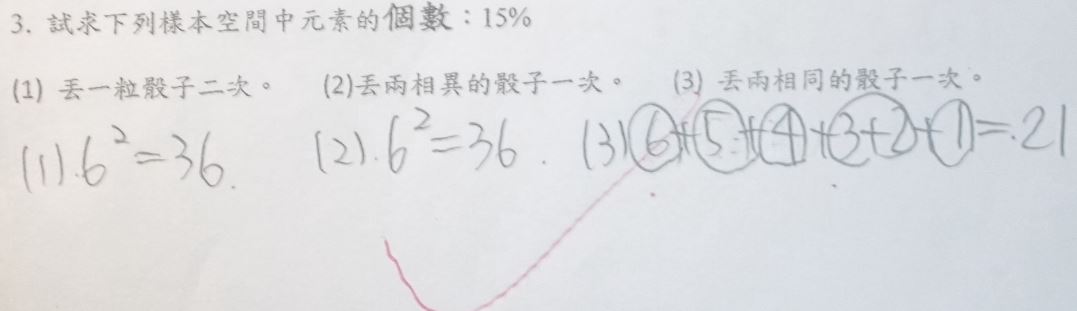 3. 試求下列樣本空間中元素的個數：15%
(1) 丟一粒骰子二次。 (2)丟兩相異的骰子一次。 (3) 丟兩相同的骰子一次。
(1).6²=36. (2).6²=36. (3)⑥+⑤+④+③+②+①=21